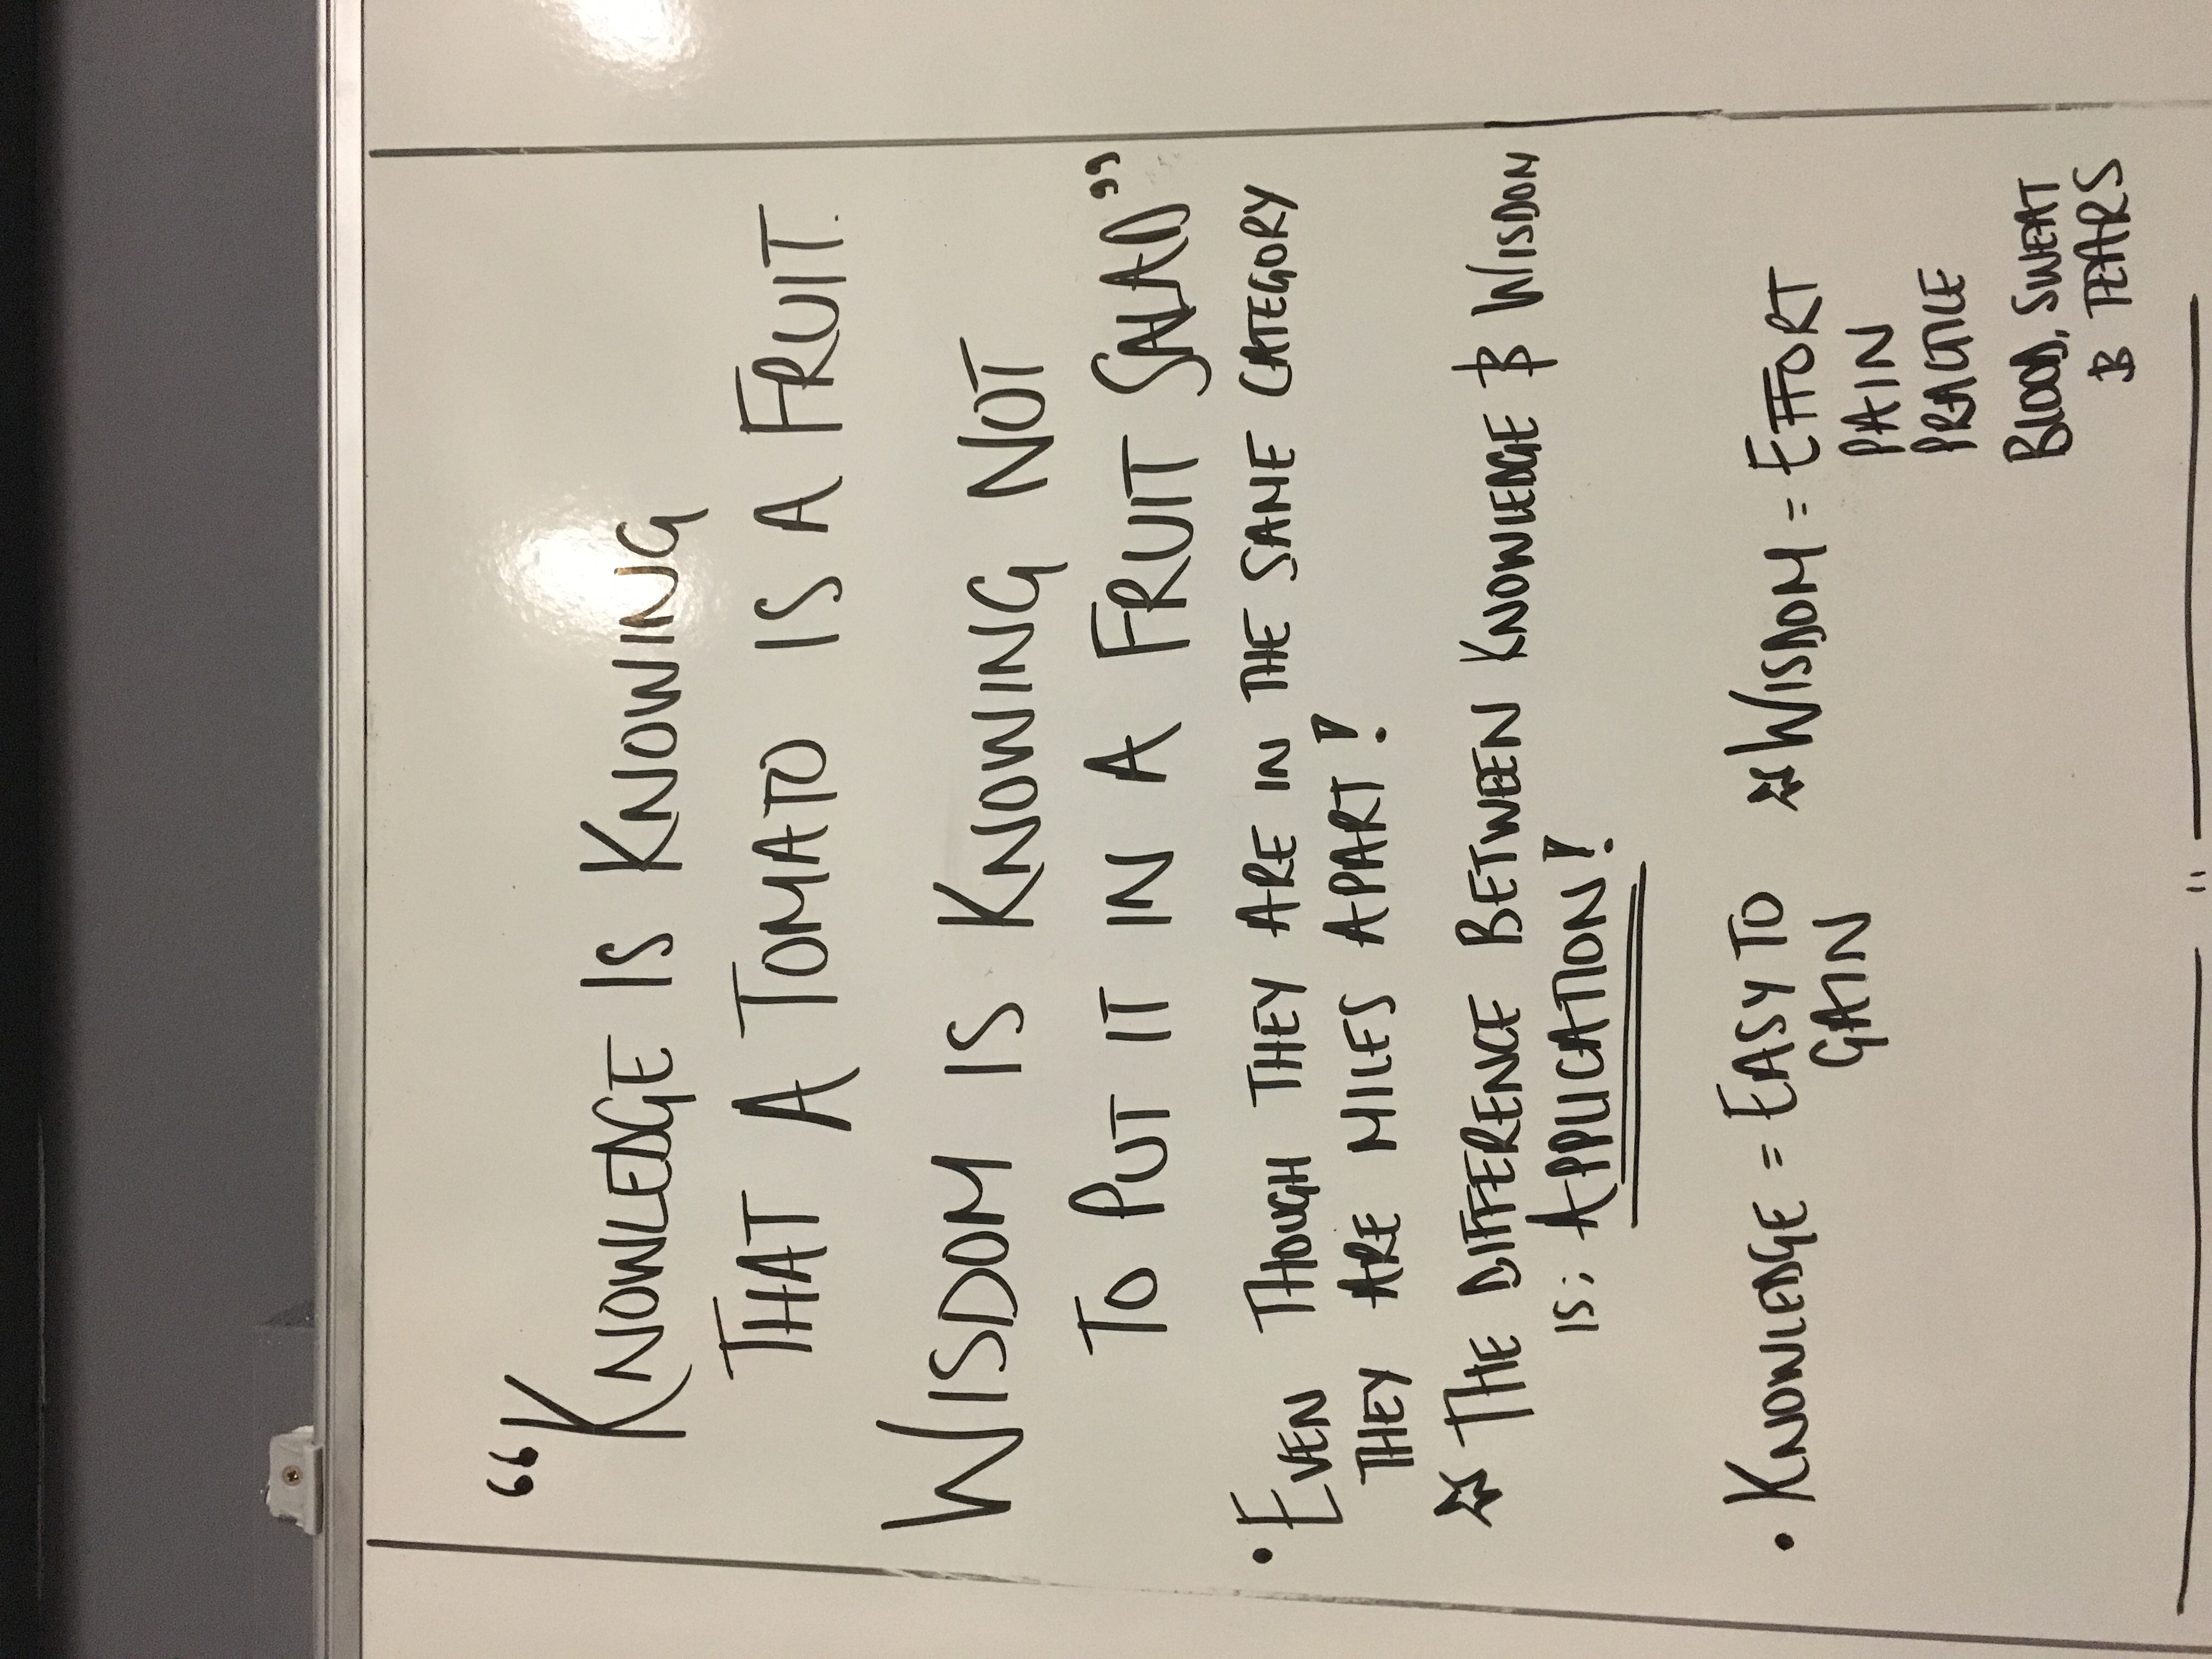 “KNOWLEDGE IS KNOWING
THAT A TOMATO IS A FRUIT.
WISDOM IS KNOWING NOT
TO PUT IT IN A FRUIT SALAD”
• EVEN THOUGH THEY ARE IN THE SAME CATEGORY
THEY ARE MILES APART!
☆ THE DIFFERENCE BETWEEN KNOWLEDGE & WISDOM
IS: APPLICATION!
• KNOWLEDGE = EASY TO
GAIN
☆ WISDOM = EFFORT
PAIN
PRACTICE
BLOOD, SWEAT
& TEARS